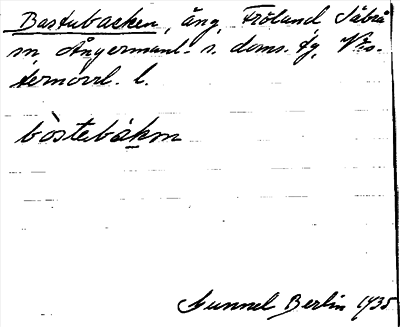 Bastubacken, äng, Fröland Säbrå
sn Ångermanl. s. doms. fg, Väs-
ternorrl. l.
bòstebákɐn
Gunnel Berlin 1935